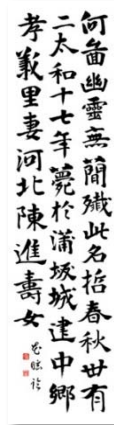 何啚幽靈無簡殲此名哲春秋卌有
二太和十七年薨於蒲坂城建中鄉
孝義里妻河北陳進壽女